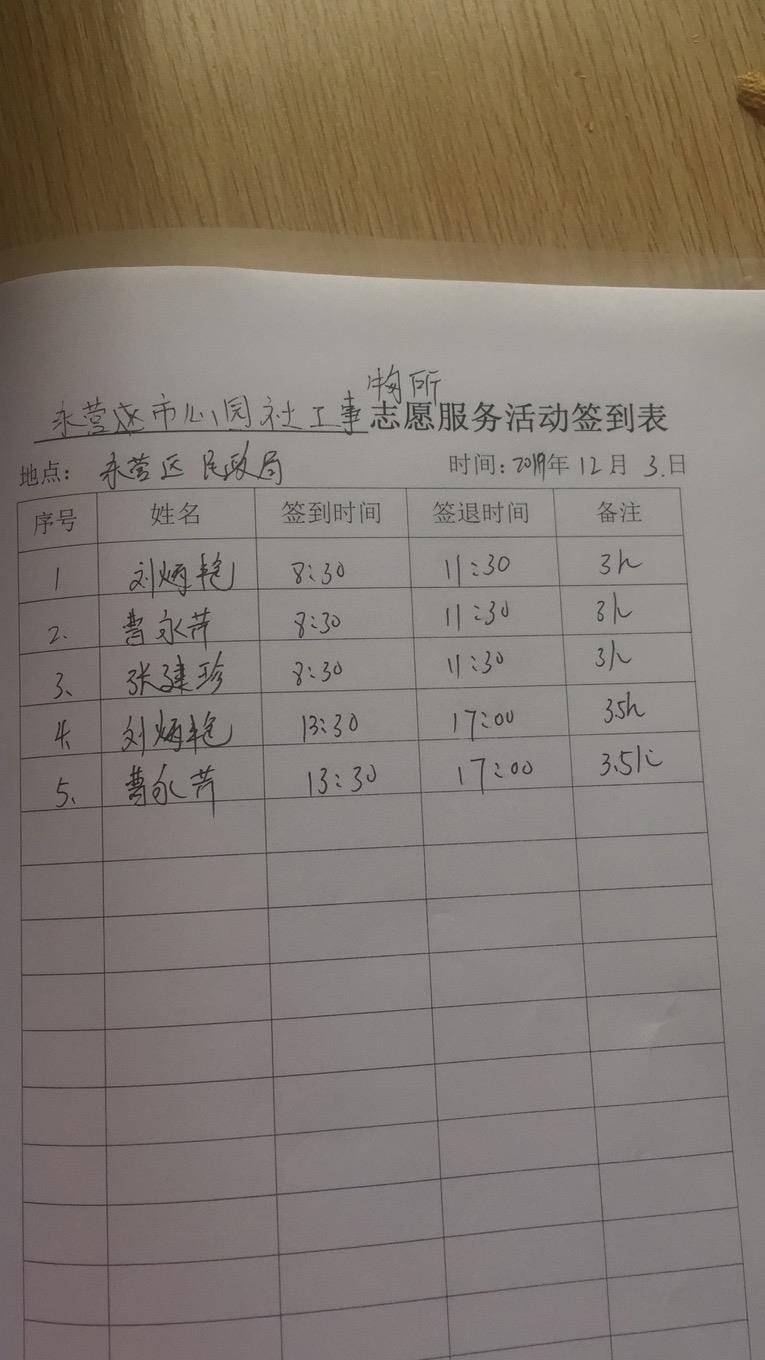 东营市心园社工事务所志愿服务活动签到表
地点: 东营区民政局 时间: 2019年12月3日
序号 姓名 签到时间 签退时间 备注
1 刘炳艳 8:30 11:30 3h
2. 曹永芹 8:30 11:30 3h
3、 张建珍 8:30 11:30 3h
4、 刘炳艳 13:30 17:00 3.5h
5、 曹永芹 13:30 17:00 3.5h